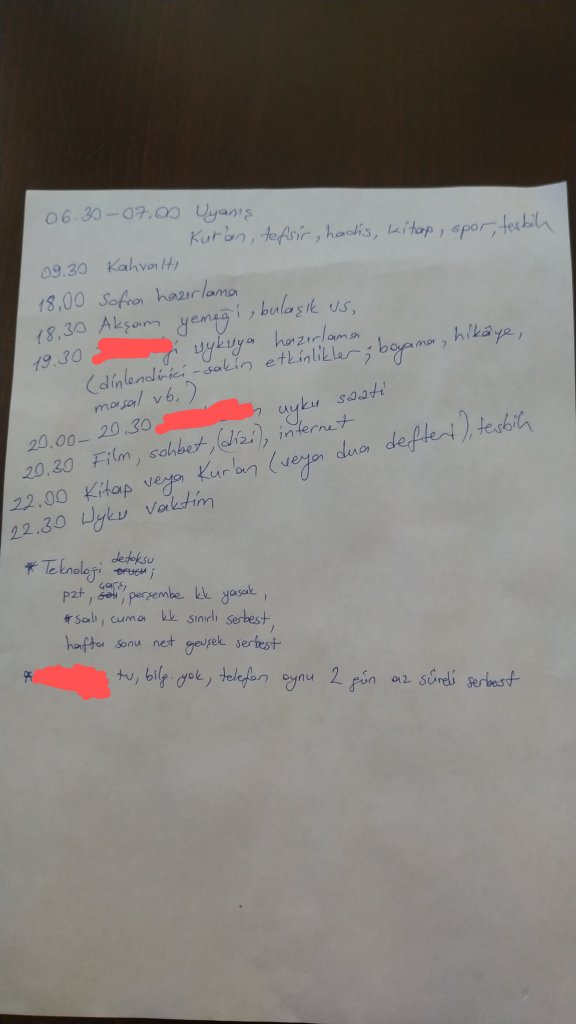 06.30-07.00 Uyanış
Kur'an, tefsir, hadis, kitap, spor, tesbih
09.30 Kahvaltı
18.00 Sofra hazırlama
18.30 Akşam yemeği, bulaşık vs,
19.30 yi uykuya hazırlama
(dinlendirici-sakin etkinlikler; boyama, hikâye,
masal vb.)
20.00-20.30 n uyku saati
20.30 Film, sohbet, (dizi), internet
22.00 Kitap veya Kur'an (veya dua defteri), tesbih
22.30 Uyku vaktim
* Teknoloji detoksu orucu;
pzt, çarş, salı, perşembe kk yasak,
* salı, cuma kk sınırlı serbest,
hafta sonu net gevşek serbest
* tv, bilg. yok, telefon oynu 2 gün az süreli serbest